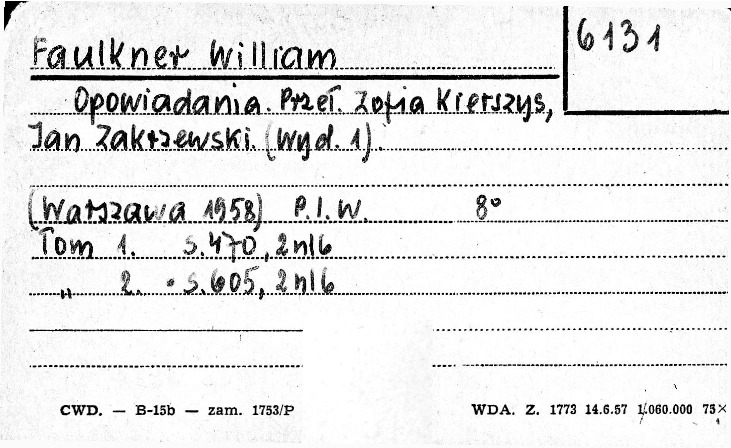 Faulkner William
6131
Opowiadania. Przeł. Zofia Kierszys,
Jan Zakrzewski. (Wyd. 1).
(Warszawa 1958) P.I.W. 8°
Tom 1. S.470, 2 nlb
„ 2. S.605, 2 nlb
CWD. — B-15b — zam. 1753/P
WDA. Z. 1773 14.6.57 1.060.000 75×